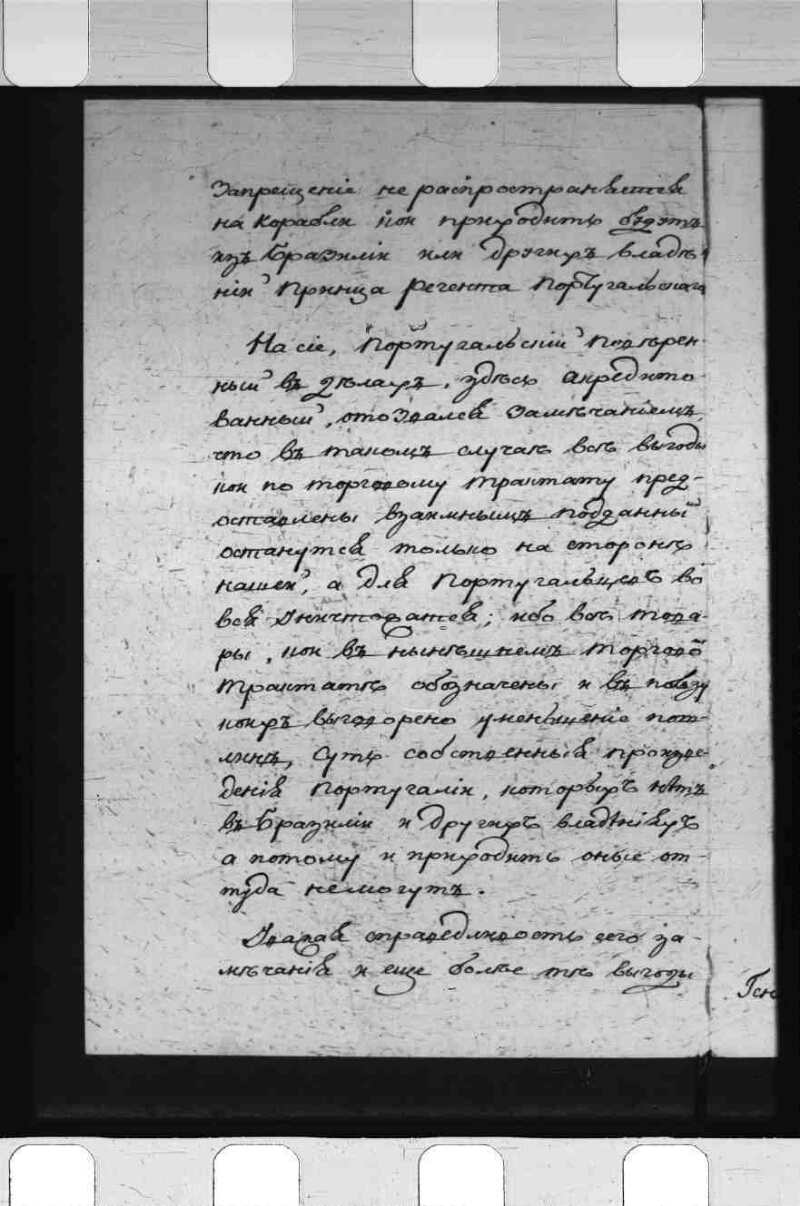 Запрещеніе не распространяется
на корабли кои приходить будутъ
изъ Бразиліи или другихъ владѣ
ній Принца Регента Португальскаго
На сіе, Португальскій Повѣрен-
ный въ дѣлахъ, здѣсь акредито-
ванный, отозвался замѣчаніемъ,
что въ такомъ случаѣ всѣ выгоды
кои по торговому трактату пред-
оставлены взаимнымъ подданны
останутся только на сторонѣ
нашей, а для Португальцевъ во
вся уничтожатся; ибо всѣ това-
ры, кои въ нынѣшнемъ торгово
трактатѣ обозначены и въ пользу
коихъ выговорено уменьшеніе пош-
линъ, суть собственныя произве-
денія Португаліи, которыхъ нѣтъ
въ Бразиліи и другихъ владѣніяхъ
а потому и приходить оные от-
туда немогутъ.
Уважая справедливость сего за-
мѣчанія и еще болѣе тѣ выгоды